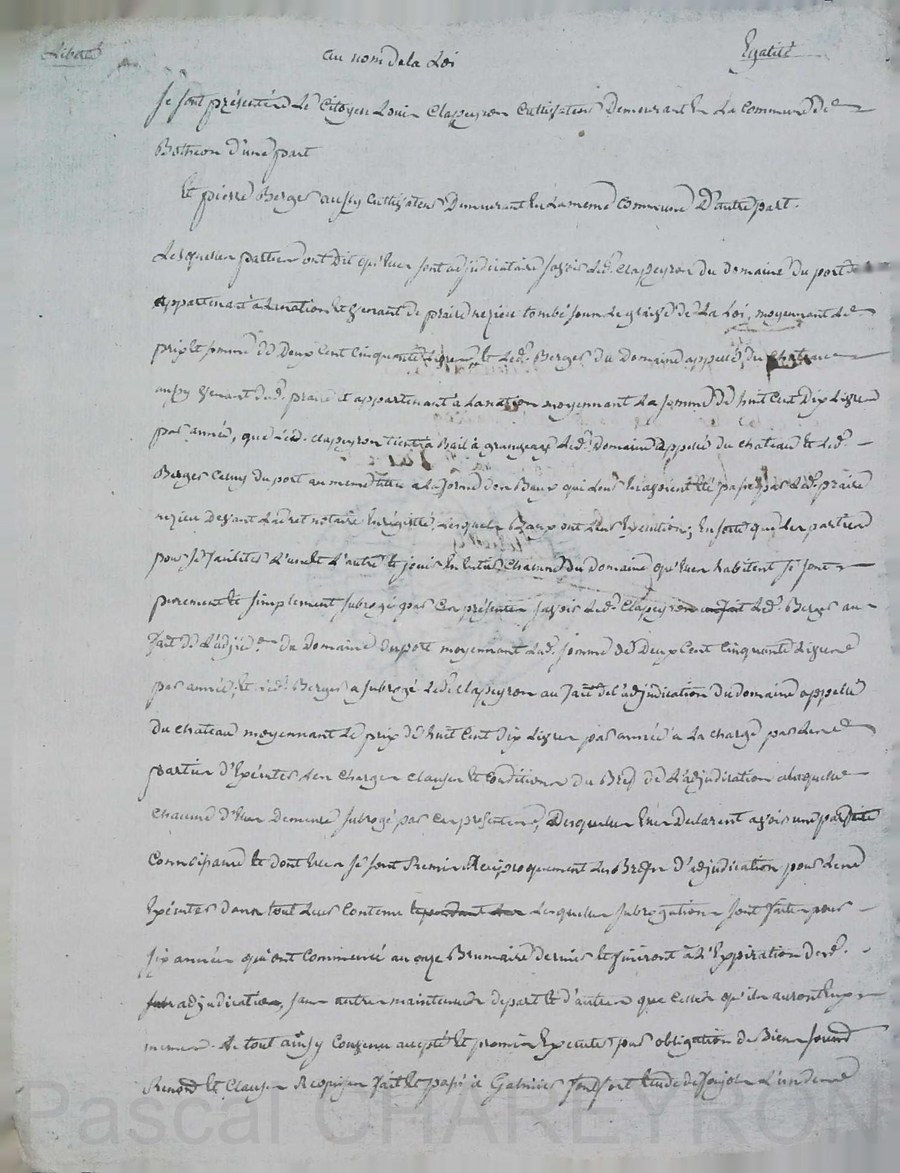 Liberté au nom de la Loi Egalité
Se sont présentéd Le Citoyen Louis Clapeyron Cultivateur Demeurant En La Commune de
Bothéon d'une part
Et pierre Berger aussy Cultivateur Demeurant En La meme Commune D'autre part.
Lesquelles parties ont dit qu'elles sont adjudicataire savoir Led. Clapeyron du domaine du port
appartenant a la nation et provenant de praire nezieu tombé sous le glaive de La Loi, moyennant Le
prix et somme de Deux Cent Cinquante Livres, et Led. Berger du Domaine appellé du Chateau
aussy provenant dud. praire et appartenant a la nation moyennant La somme de huit Cent Dix Livres
par année, que Led. Clapeyron tient a Bail a grangeage Led. Domaine appellé du chateau et Led.
Berger Celuy du port au meme titre a la forme des Baux qui Leur En avoient été passé par Led. praire
nezieu devant notaire Enregistré, Lesquels Baux ont Leur Execution; En sorte que Les parties
pour se faciliter L'une et L'autre et jouir En Entier Chacune du Domaine qu'elles habitent se sont
purement et simplement subrogé par Ces présentes savoir Led. Clapeyron Led. Berger au
fait de L'adjud.on du Domaine du port moyennant Lad. somme de Deux Cent Cinquante Livres
par année, et Led. Berger a subrogé Led. Clapeyron au fait de l'adjudication du domaine appellé
Du chateau moyennant Le prix de huit Cent Dix Livres par année a La charge par Les
parties d'Exécuter Les Charges Clauses et Conditions du Bref de L'adjudication a laquelle
Chacune d'Elles Demeure subrogé par Ces présentes, Desquelles Elles Declarent avoir une parfaite
Connoissance et dont Elles se sont Remis Réciproquement Les Brefs d'adjudication pour Les
Exécuter dans tout Leur Contenu Lesquelles subrogations sont faites pour
six années qu'ont Commencé au onze Brumaire dernier et finiront à L'Expiration desd.
adjudications, sans autres maintenue de part et d'autre que Celles qu'ils auront Eux
memes. Le tout ainsy Convenu accepté et promis Executer par obligation de Biens soumis
Renonc. et Clauses Requises fait et passé a Galmier fontfort Etude de L'un des